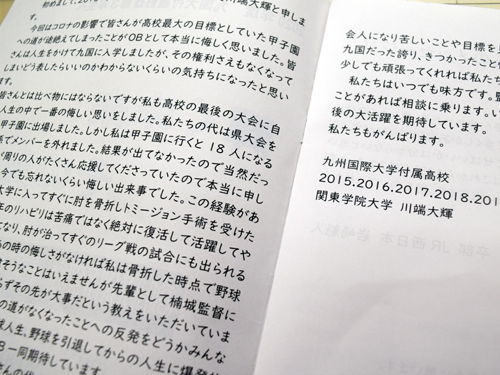 初めまして、201
川端大輝と申しま
す。
今回はコロナの影響で皆さんが高校最大の目標としていた甲子園
への道が途絶えてしまったことがOBとして本当に悔しく思いました。皆
さんは人生をかけて九国に入学しましたが、その権利さえもなくなって
しまいどう表したらいいのかわからないくらいの気持ちになったと思い
皆さんとは比べ物にはならないですが私も高校の最後の大会に自
人生の中で一番の悔しい思いをしました。私たちの代は県大会を
甲子園に出場しました。しかし私は甲子園に行くと18人になる
係でメンバーを外れました。結果が出てなかったので当然だっ
周りの人がたくさん応援してくださっていたので本当に申し
今でも忘れないくらい悔しい出来事でした。この経験があ
大学に入ってすぐに肘を骨折しトミージョン手術を受けた
年のリハビリは苦痛ではなく絶対に復活して活躍してや
なり、肘が治ってすぐのリーグ戦の試合にも出られる
の時の悔しさがなければ私は骨折した時点で野球
そうなことはいえませんが先輩として楠城監督に
らずその先が大事だという教えをいただいていま
の道がなくなったことへの反発をどうかみんな
球人生、野球を引退してからの人生に爆発
B一同期待しています。
会人になり苦しいことや目標を見
九国だった誇り、きつかったこと
少しでも頑張ってくれれば私た
私たちはいつでも味方です。
ことがあれば相談に乗ります。い
後の大活躍を期待しています。
私たちもがんばります。
九州国際大学付属高校
2015.2016.2017.2018.201
関東学院大学 川端大輝